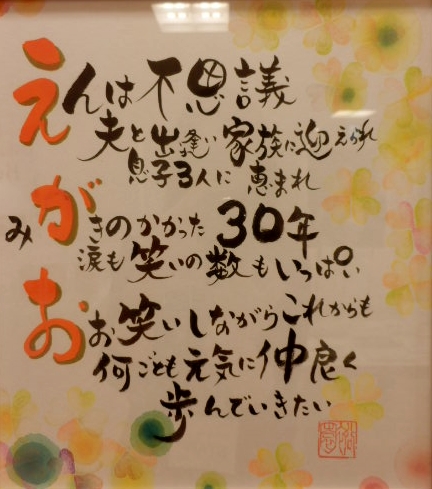 えんは不思議
夫と出逢い家族に迎えられ
息子3人に恵まれ
みがきのかかった30年
涙も笑いの数もいっぱい
おお笑いしながらこれからも
何ごとも元気に仲良く
歩んでいきたい